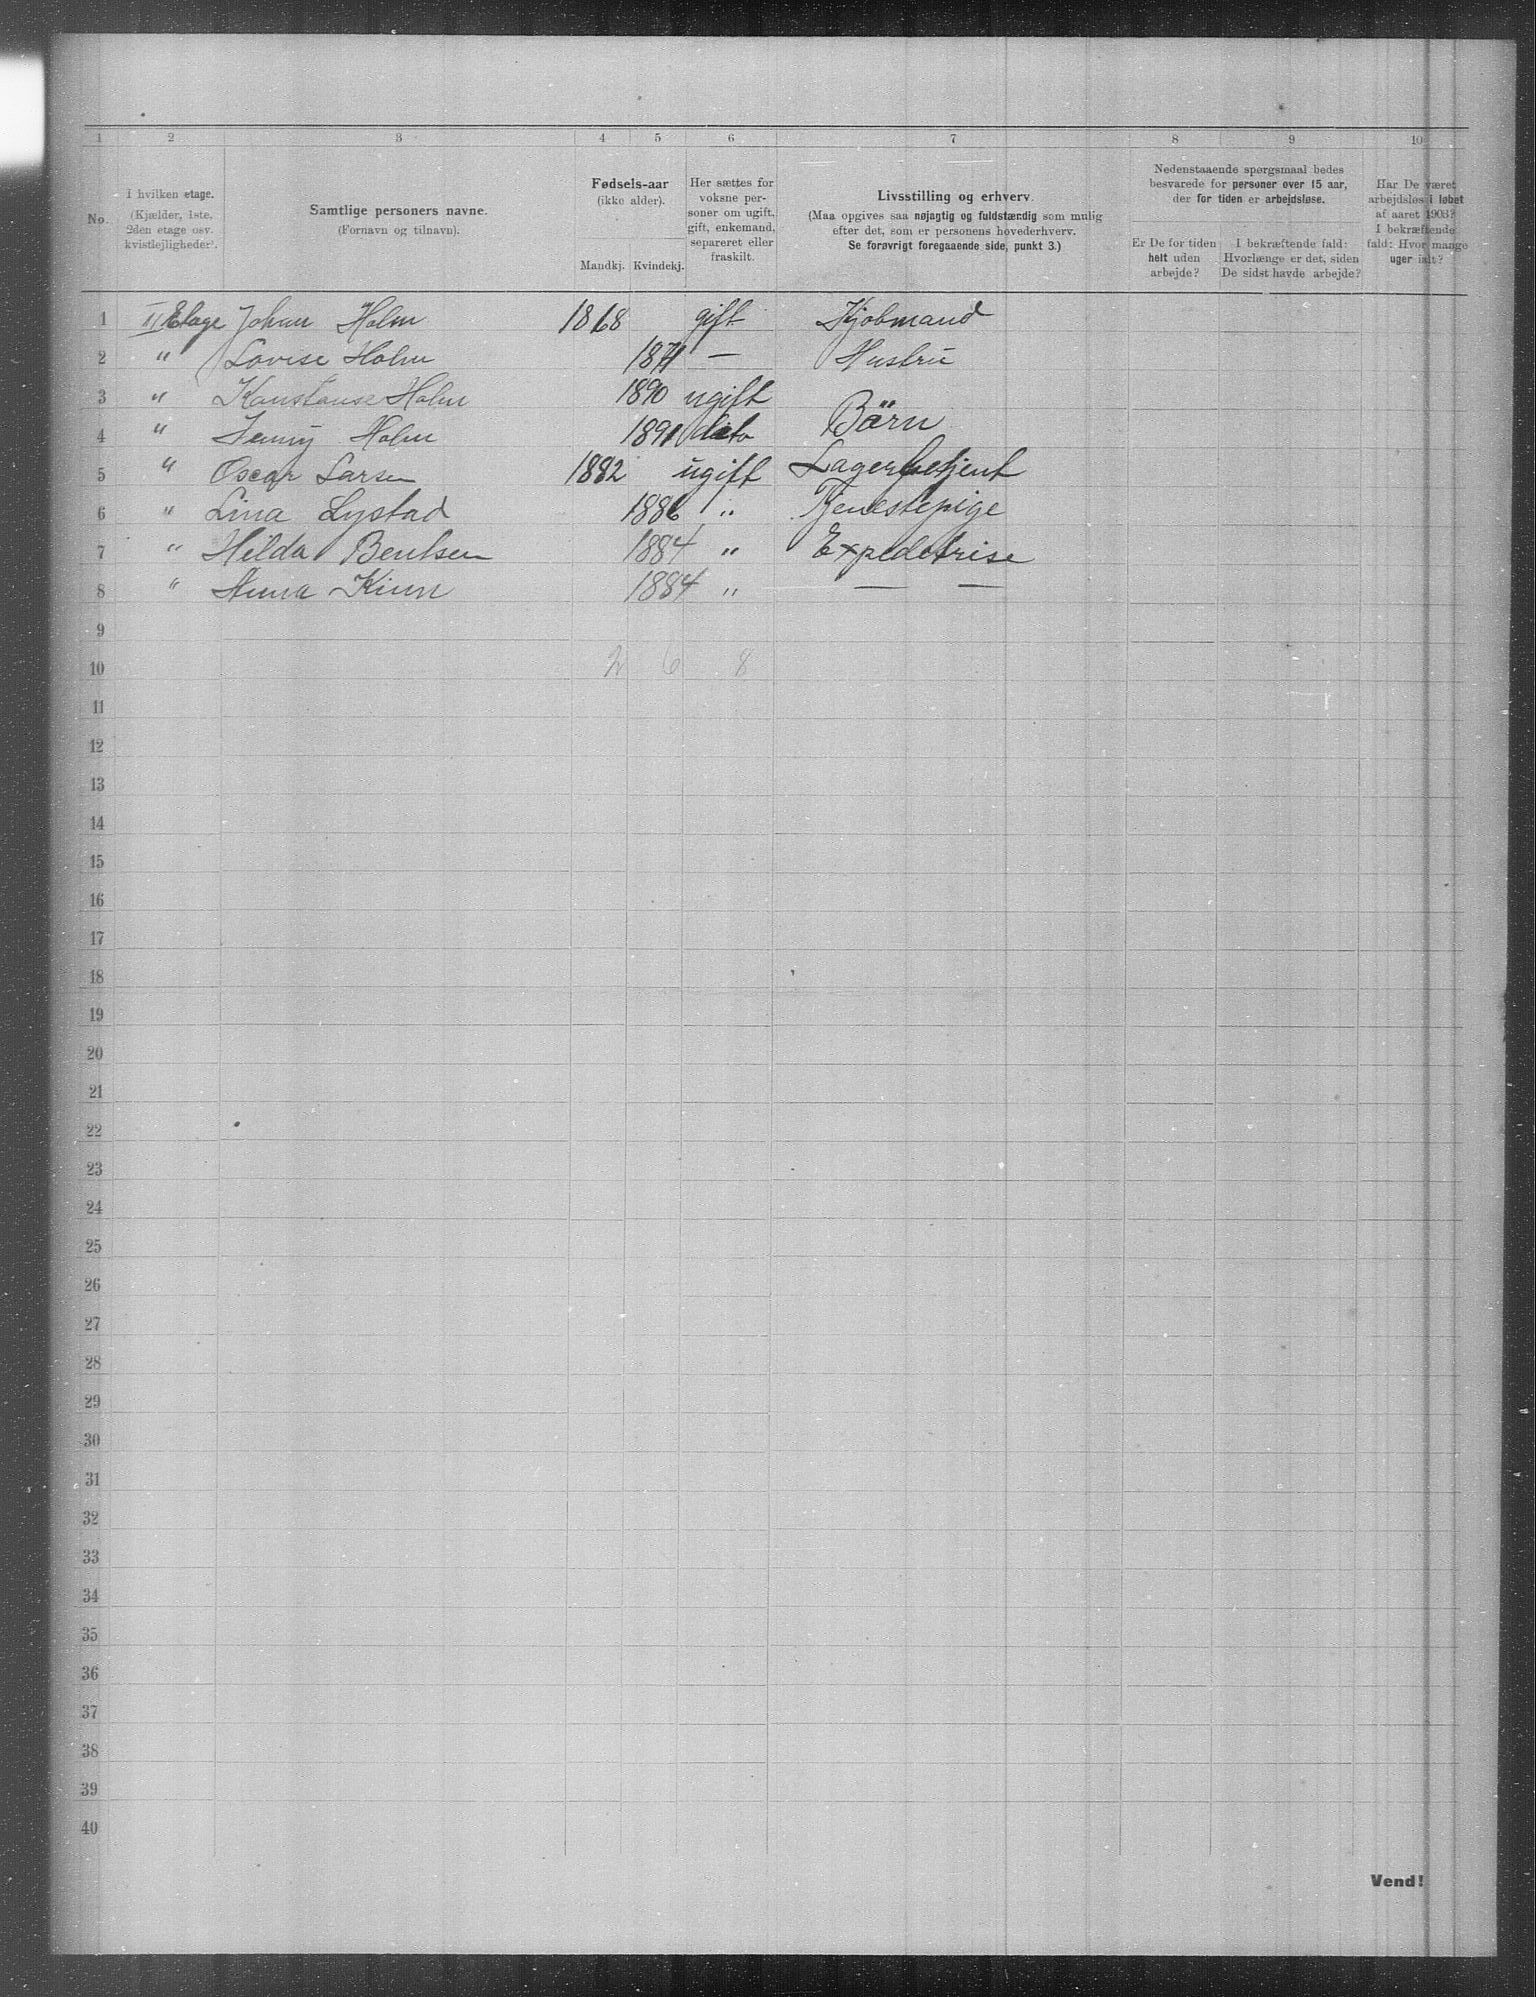 1 2 3 4 5 6 7 8 9 10
No.
I hvilken etage.
(Kjælder, 1ste,
2den etage osv.
kvistlejligheder).
Samtlige personers navne.
(Fornavn og tilnavn).
Fødsels-aar
(ikke alder).
Mandkj. Kvindekj.
Her sættes for
voksne per-
soner om ugift,
gift, enkemand,
separeret eller
fraskilt.
Livsstilling og erhverv.
(Maa opgives saa nøjagtig og fuldstændig som mulig
efter det, som er personens hovederhverv.
Se forøvrigt foregaaende side, punkt 3.)
Nedenstaaende spørgsmaal bedes
besvarede for personer over 15 aar,
der for tiden er arbejdsløse.
Er De for tiden
helt uden
arbejde?
I bekræftende fald:
Hvorlænge er det, siden
De sidst havde arbejde?
Har De været
arbejdsløs i løbet
af aaret 1903?
I bekræftende
fald: Hvor mange
uger ialt?
1 II Etage Johan Holm 1868 gift Kjøbmand
2 " Lovise Holm 1871 — Hustru
3 " Konstanse Holm 1890 ugift
4 " Jenny Holm 1891 dito Börn
5 " Oscar Larsen 1882 ugift Lagerbetjent
6 " Lina Lystad 1886 " Tjenestepige
7 " Hilda Bentsen 1884 " Expedetrise
8 " Anna Kinn 1884 " — —
9
10 2 6 8
11
12
13
14
15
16
17
18
19
20
21
22
23
24
25
26
27
28
29
30
31
32
33
34
35
36
37
38
39
40
Vend!